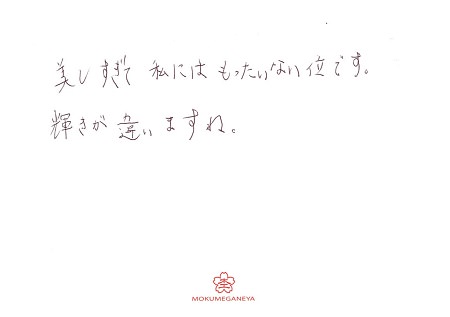 美しすぎて 私には もったいない位です。
輝きが 違いますね。
MOKUMEGANEYA